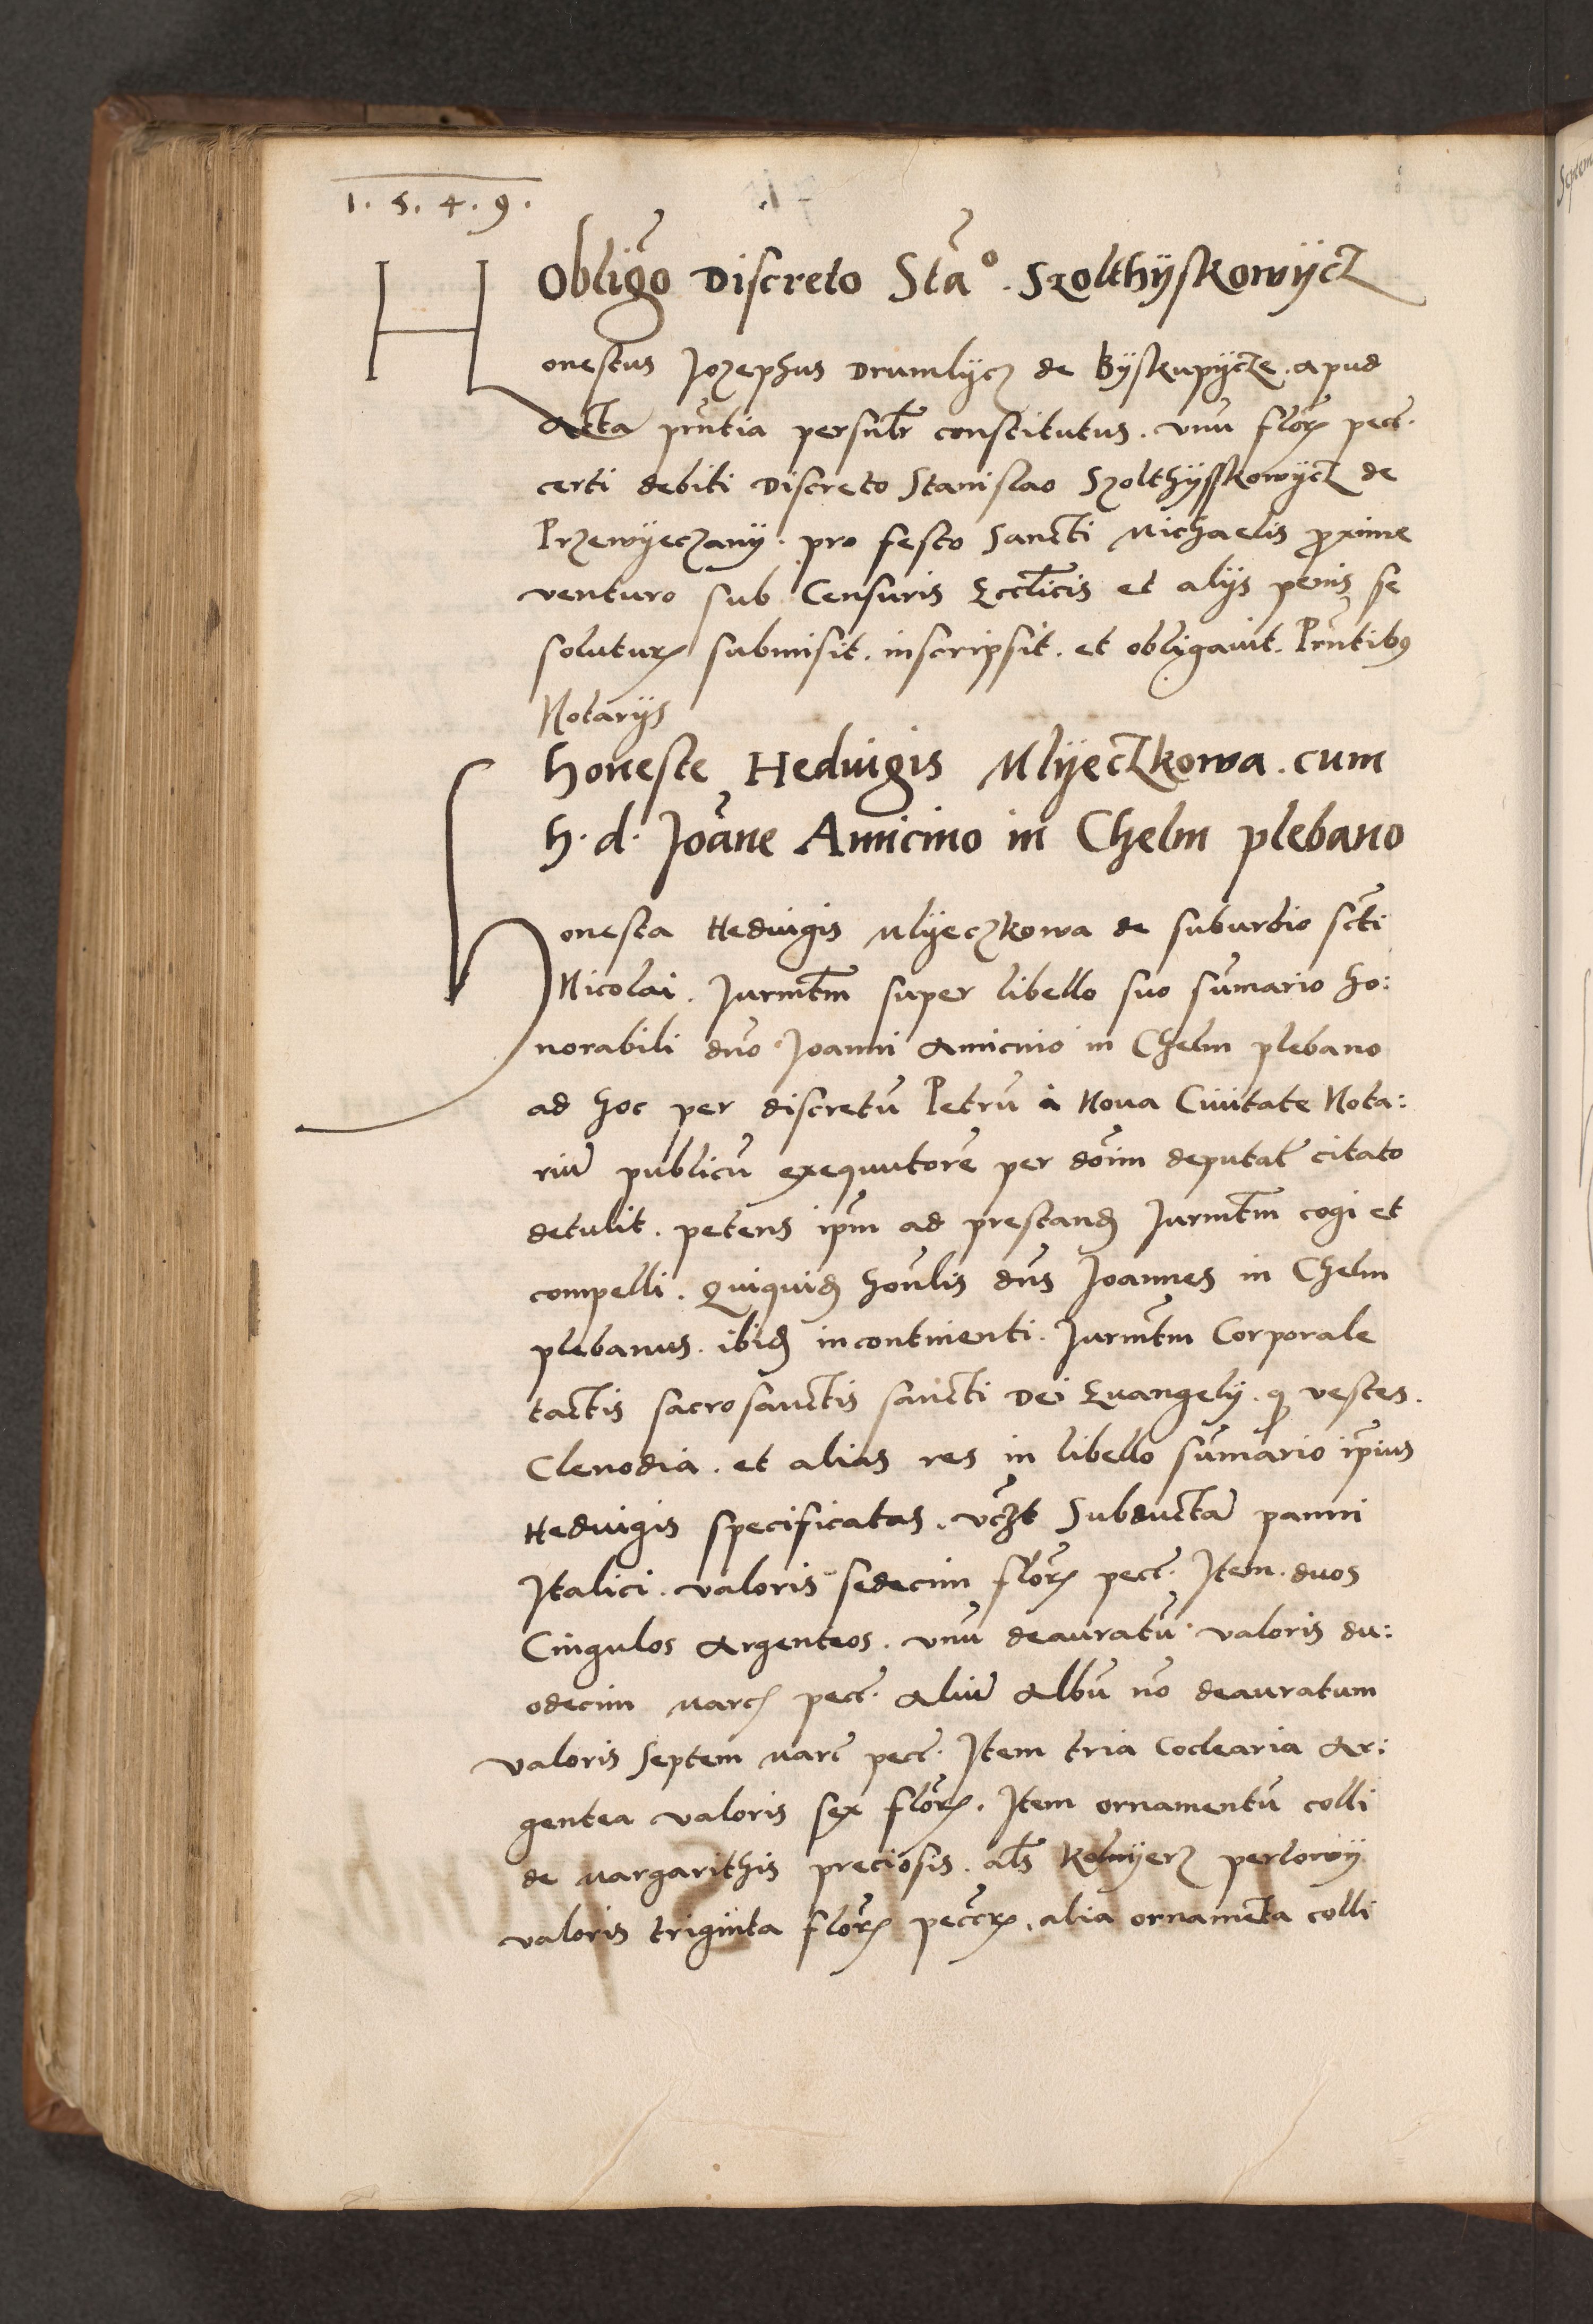 1. 5. 4. 9.
Obligõ Discreto Stãº. Szolthÿskowÿcz
Honestus Jozephus Drumlÿcz de Bÿskupÿcze. apud
Acta pr̃ntia persnlr̃ constitutus. vnũ flor̃ pecc̃.
certi debiti Discreto Stanislao Szolthÿsskowÿcz de
Przewÿeczanÿ. pro festo Sancti Michaelis proxime
venturo sub Censuris Eccl̃icis et alijs penis, se
solutur̃ submisit. inscripsit. et obligauit. Pr̃ntibꝰ
Notarijs
Honeste Hedvigis Mlÿeczkowa. cum
h. d. Joãne Amicino in Chelm plebano
Honesta Hedvigis Mlÿeczkowa de suburbio sc̃ti
Nicolai. Jurmt̃m super libello suo sũmario ho:
norabili dn̄o Joanni Amicino in Chelm plebano
ad hoc per discretũ Petrũ à Noua Ciuitate Nota:
riũ publicũ exequutorẽ per dõim deputat̃ citato
detulit. petens ip̃m ad prestand̃ Jurmt̃m cogi et
compelli. Quiquid̃ hon̄lis dn̄s Joannes in Chelm
plebanus. ibid̃ incontinenti. Jurmt̃m Corporale
tactis sacrosanctis sancti Dei Euangely. ꝙ vestes.
Clenodia. et alias res in libello sũmario ip̃ius
Hedvigis specificatas. vcz̃t Subductã panni
Italici. valoris sedecim flor̃ pecc̃. Item duos
Cingulos Argenteos. vnũ deauratũ valoris du:
odecim marc̃ pecc̃. Aliũ Albũ nõ deauratum
valoris Septem marc̃ pecc̃. Item tria Coclearia Ar:
gentea valoris sex flor̃. Item ornamentũ colli
de margarithis preciosis. als̃ kolnÿerz perlowÿ
valoris triginta flor̃ pecc̃r̃. alia ornamẽta colli